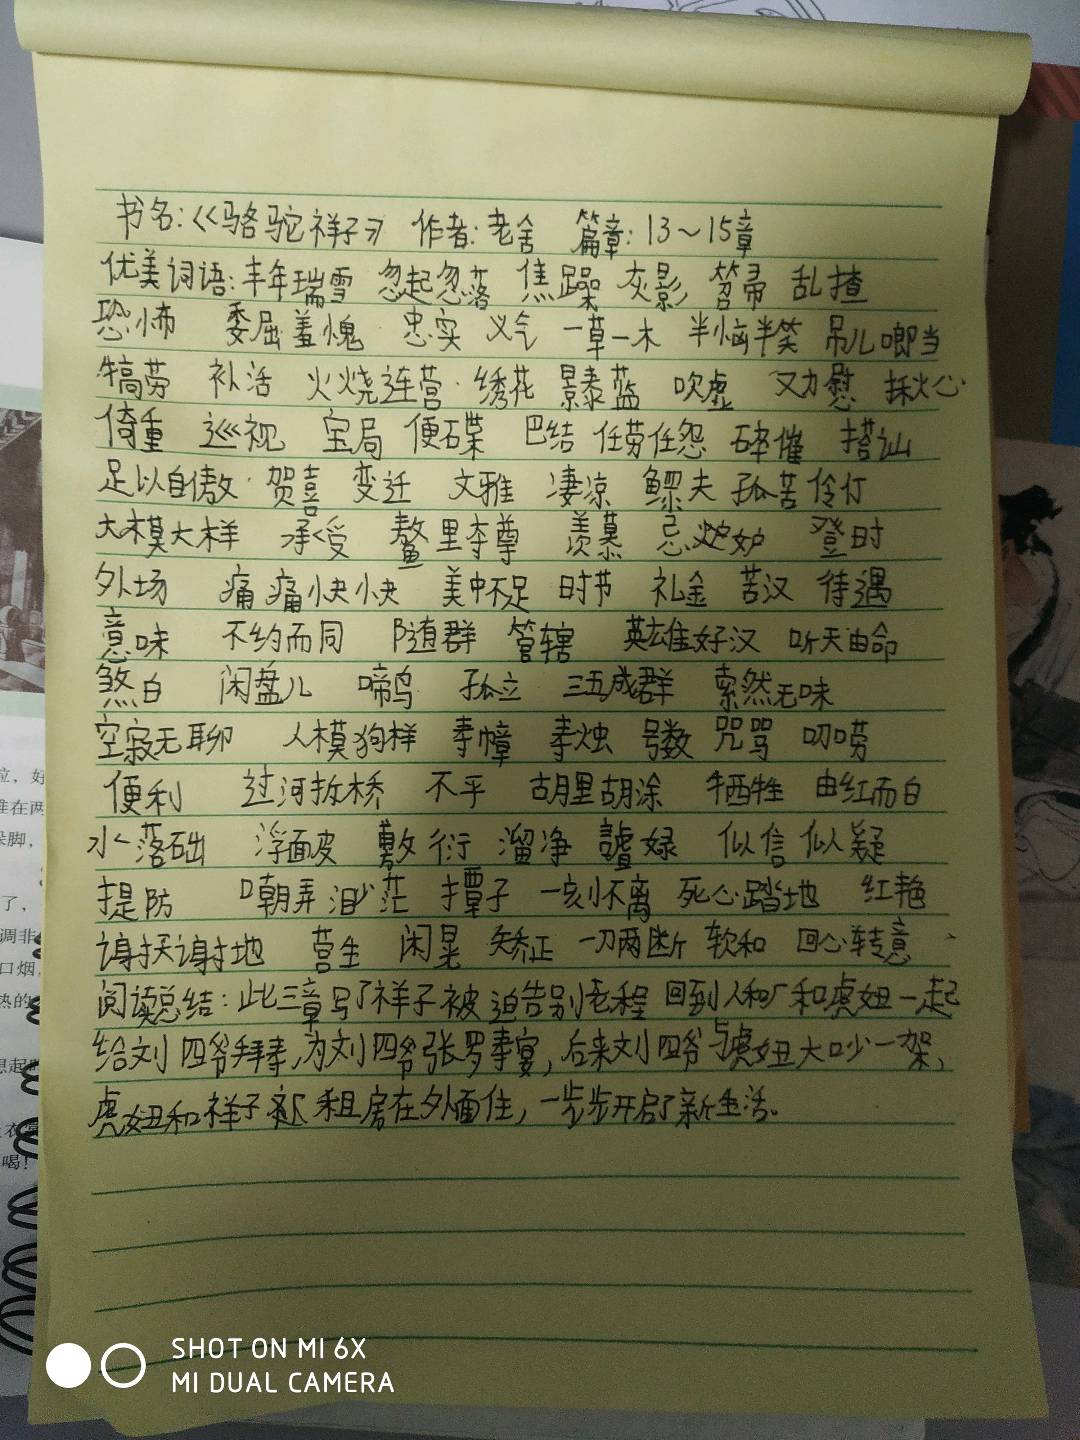 书名:《骆驼祥子》 作者:老舍 篇章:13~15章
优美词语:丰年瑞雪 忽起忽落 焦躁 灰影 笤帚 乱揸
恐怖 委屈羞愧 忠实 义气 一草一木 半恼半笑 吊儿啷当
犒劳 补活 火烧连营 绣花 景泰蓝 吹虚 慰 揪心
倚重 巡视 宝局 便碟 巴结 任劳任怨 碎催 搭讪
足以自傲 贺喜 变迁 文雅 凄凉 鳏夫 孤苦伶仃
大模大样 承受 鳌里夺尊 羡慕 忌妒 登时
外场 痛痛快快 美中不足 时节 礼金 苦汉 待遇
意味 不约而同 随群 管辖 英雄好汉 听天由命
煞白 闲盘儿 啼鸣 孤立 三五成群 索然无味
空寂无聊 人模狗样 寿幛 寿烛 号数 咒骂 叨唠
便利 过河拆桥 不平 胡里胡涂 牺牲 由红而白
水落石出 浮面皮 敷衍 溜净 似信似疑
提防 嘲弄 渺茫 掸子 一刻不离 死心踏地 红艳
谢天谢地 营生 闲晃 矫正 一刀两断 软和 回心转意
阅读总结:此三章写了祥子被迫告别老程 回到人和厂和虎妞一起
给刘四爷拜寿,为刘四爷张罗寿宴,后来刘四爷与虎妞大吵一架,
虎妞和祥子 租房在外面住,一步步开启了新生活。
SHOT ON MI 6X
MI DUAL CAMERA